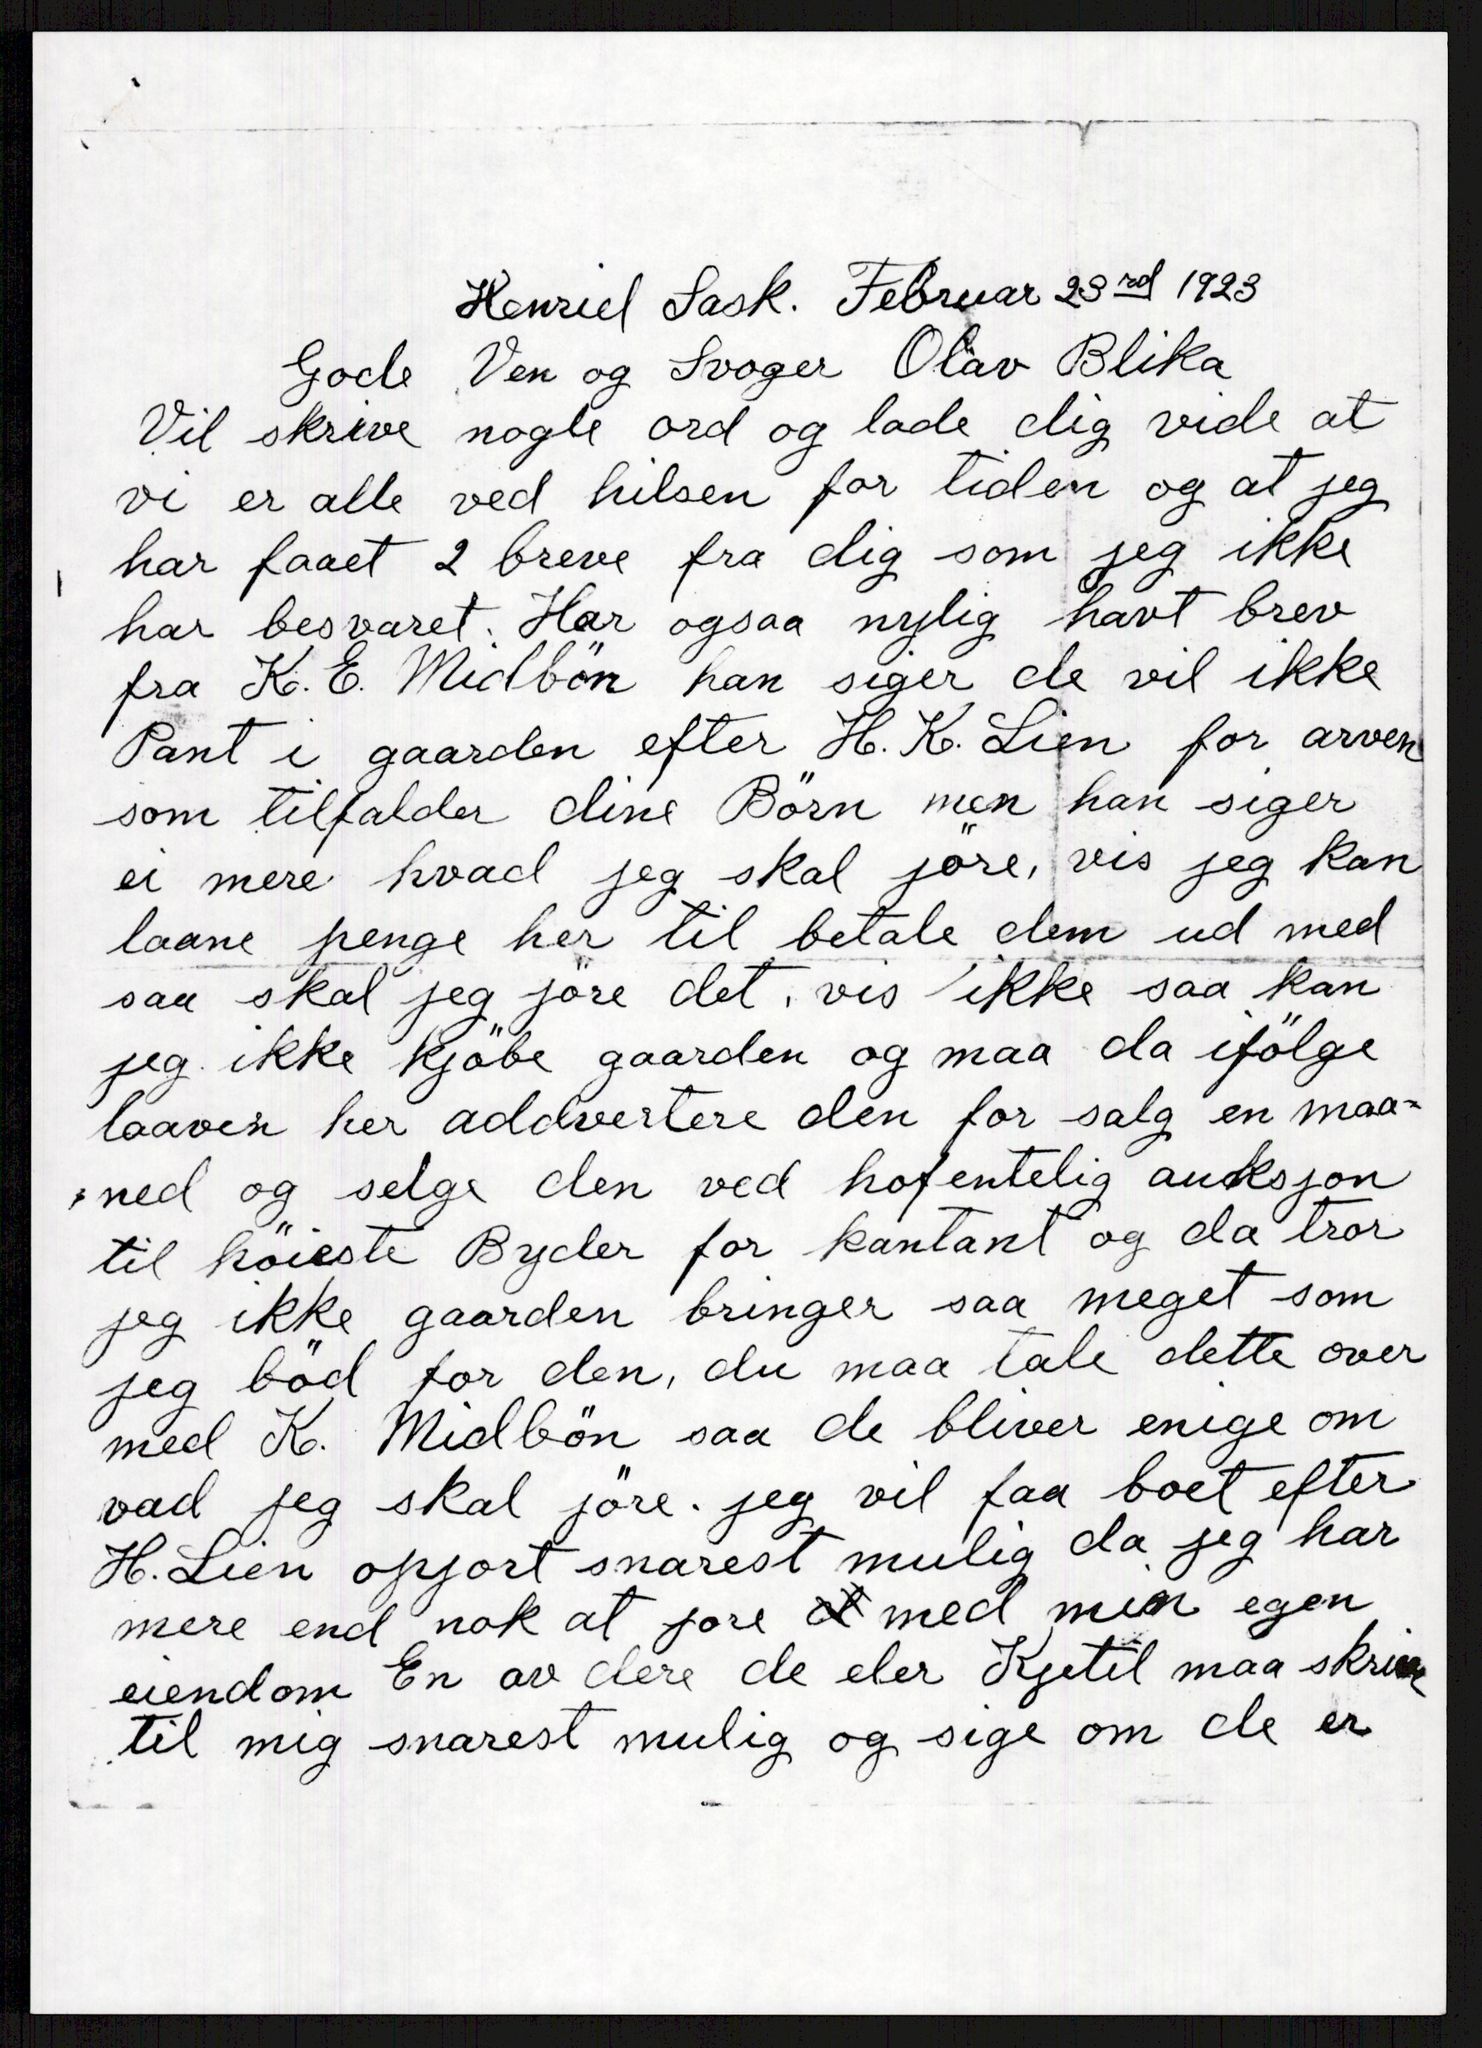 Henriel Sask. Februar 23rd 1923
Gode Ven og Svoger Olav Blika
Vil skrive nogle ord og lade dig vide at
vi er alle ved hilsen for tiden og at jeg
har faaet 2 breve fra dig som jeg ikke
har besvaret. Har ogsaa nylig havt brev
fra K. E. Midbön han siger de vil ikke
Pant i gaarden efter H. K. Lien for arven
som tilfalder dine Börn men han siger
ei mere hvad jeg skal jöre, vis jeg kan
laane penge her til betale dem ud med
saa skal jeg jöre det, vis ikke saa kan
jeg ikke kjöbe gaarden og maa da ifölge
laaven her addvertere den for salg en maa=
ned og selge den ved hofentelig auksjon
til höieste Byder for kantant og da tror
jeg ikke gaarden bringer saa meget som
jeg böd for den, du maa tale dette over
med K. Midbön saa de bliver enige om
vad jeg skal jöre. jeg vil faa boet efter
H. Lien opjort snarest mulig da jeg har
mere end nok at jore med min egen
eiendom En av dere de eler Kjetil maa skrive
til mig snarest mulig og sige om de er